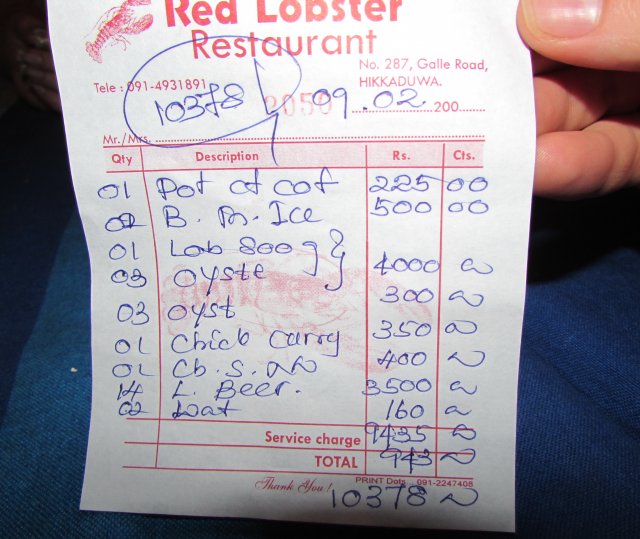 Red Lobster
Restaurant
No. 287, Galle Road,
HIKKADUWA.
Tele : 091-4931891
10378
2050
09.02 200
Mr./Mrs.
Qty Description Rs. Cts.
01 Pot of cof 225 00
02 B. m. Ice 500 00
01 Lob 800 g
03 oyste 4000
03 oyst 300
01 Chick curry 350
01 Ch. s. 400
14 L. Beer. 3500
02 wat 160
Service charge 9435
TOTAL 943
Thank You! PRINT Dots.. 091-2247408
10378